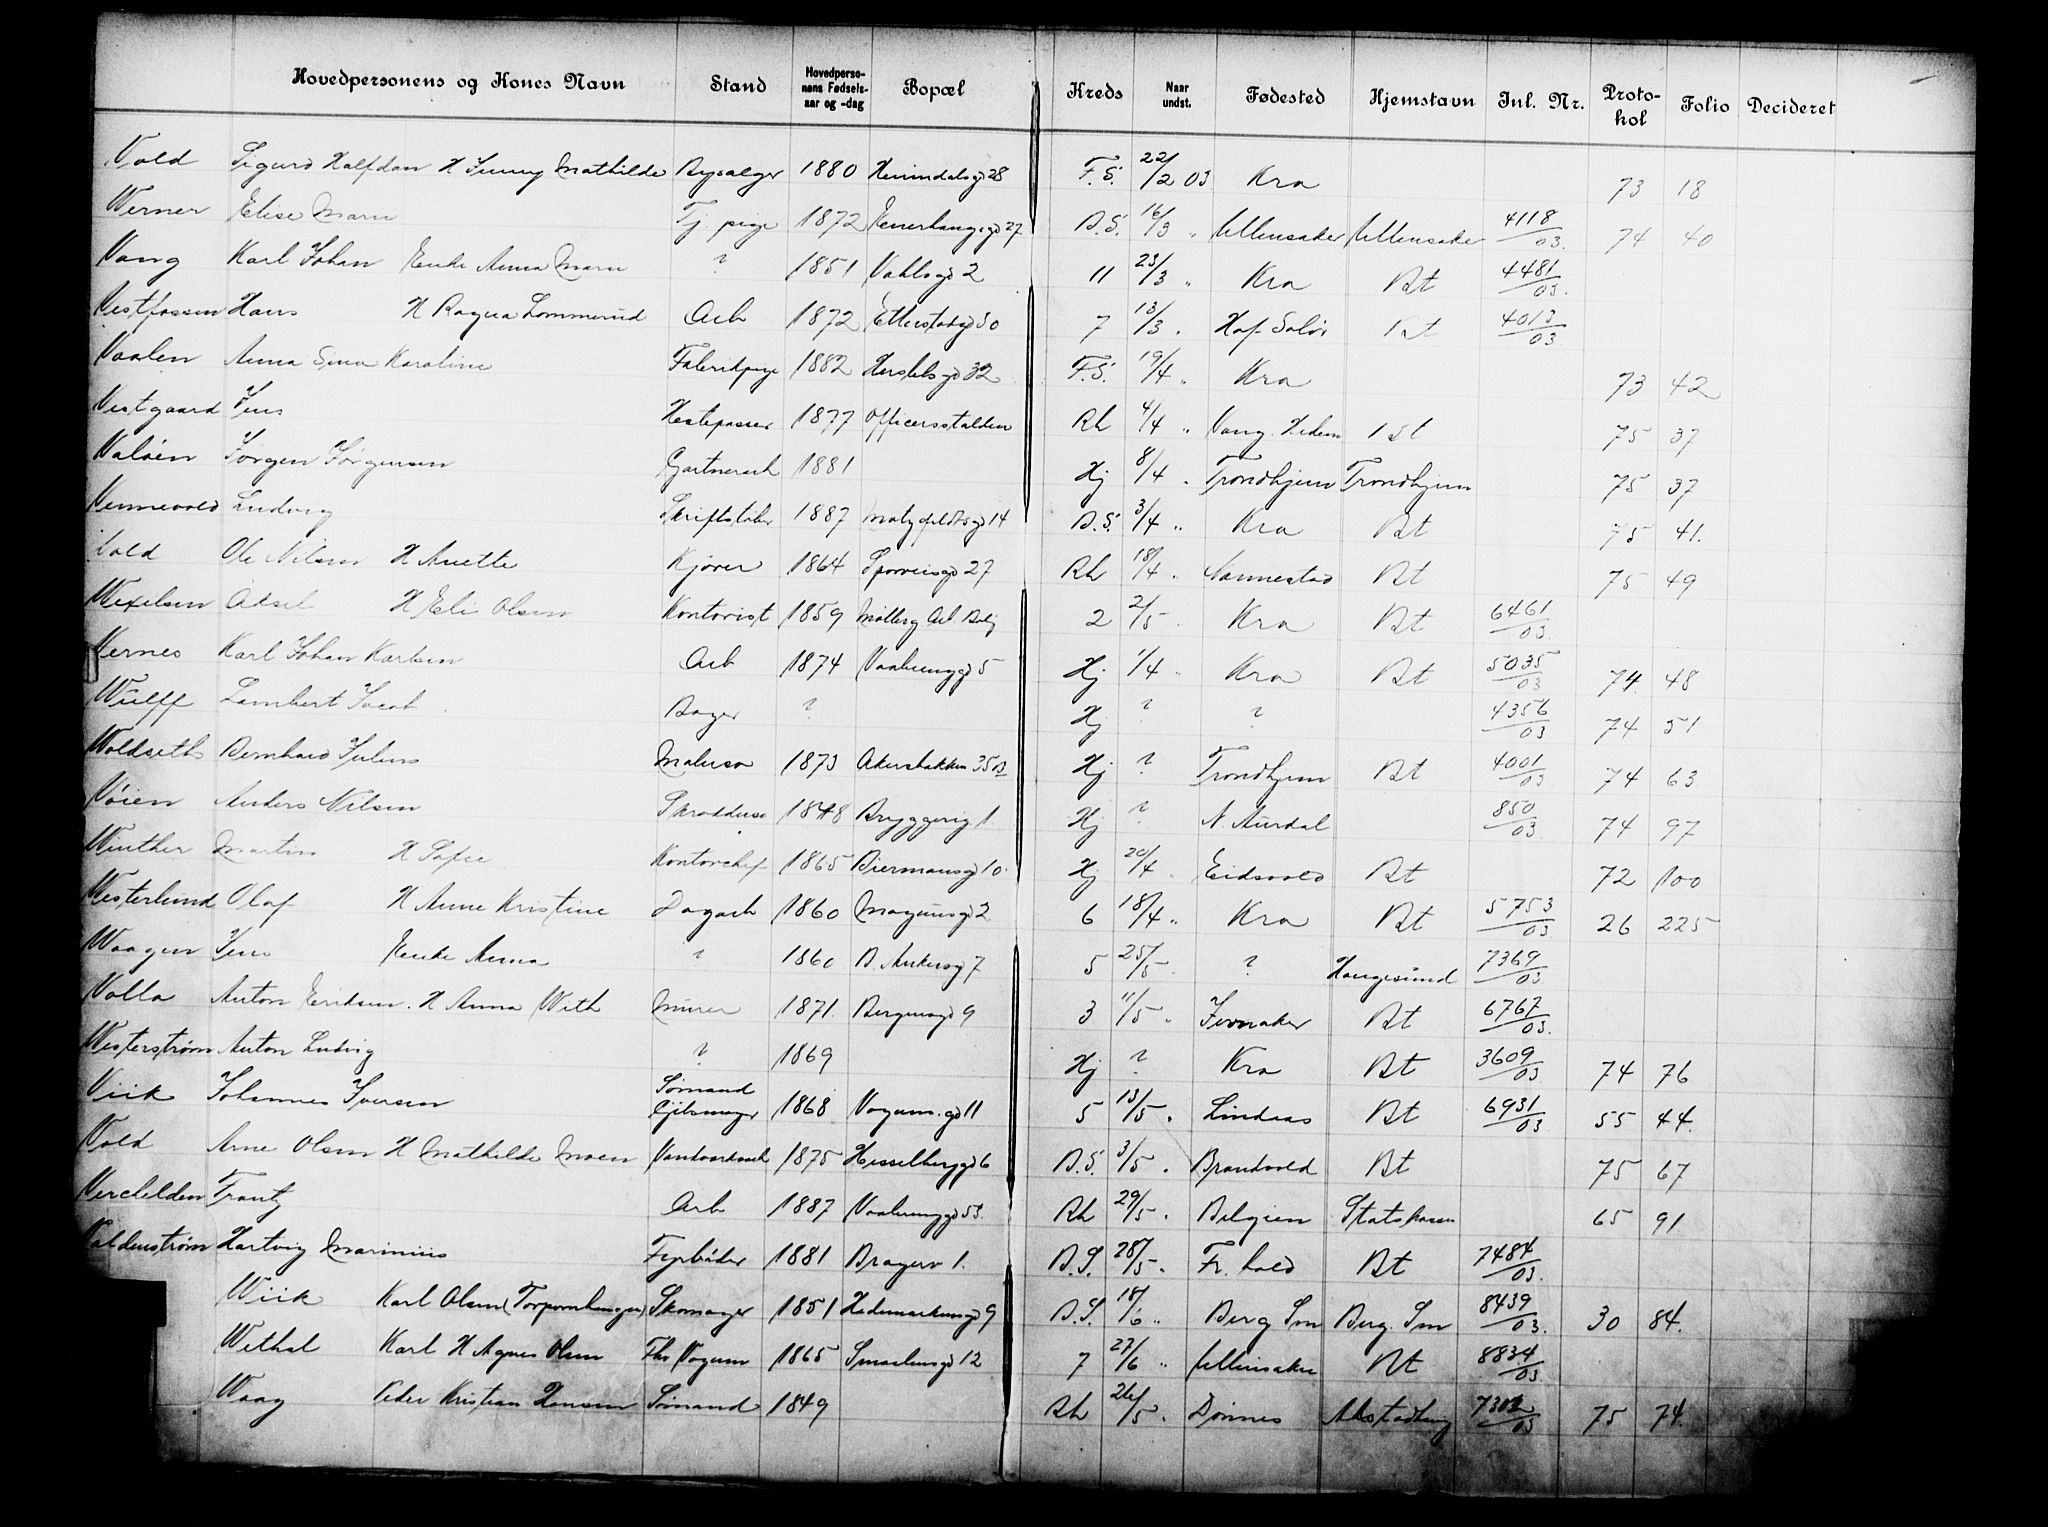 Hovedpersonens og Kones Navn Stand Hovedpersonens Fødselsaar og -dag Bopæl Kreds Naar undst. Fødested Hjemstavn Inl. Nr. Protokol Folio Decideret
Vold Sigurd Halfdan H Jenny Mathilde Bysælger 1880 Heimdalsgd 28 F.S. 22/2 03 Kra 73 18
Werner Elise Marie Tj. pige 1872 27 B.S. 16/3 " Ullensaker Ullensaker 4118/03. 74 40
Vang Karl Johan Enke Anna Marie ? 1851 Vahlsgd 2 11 23/3 " Kra Bt 4481/03.
Vestfossen Hans H Ragna Lommerud Arb 1872 Etterstadgd 30 7 13/3 " Hof. Solør Bt 4013/03
Vaalen Anna Sina Karoline Fabrikpige 1882 Herslebsgd 32 F.S. 19/4 " Kra 73 42
Vestgaard Jens Hestepasser 1877 Officersstalden Rh 4/4 " Vang. Hedem Bt 75 37
Valøen Jørgen Jørgensen Gartnerarb 1881 Hj 8/4 " Trondhjem Trondhjem 75 37
Vennevold Ludvig Skriftstøber 1887 14 B.S. 3/4 " Kra Bt 75 41.
Vold Ole Nilsen H Anette Kjører 1864 Sporveisgd 27 Rh 18/4 " Nannestad Bt 75 49
Wexelsen Aksel H Eli Olsen Kontorist 1859 Mølberg Arb. Bolig 2 2/5 " Kra Bt 6461/03.
Vernes Karl Johan Karlsen Arb 1874 Vaalerenggd 5 Hj 1/4 " Kra Bt 5035/03 74. 48
Wulff Lambert Jacob Bager ? Hj ? ? 4356/03 74 51
Voldseth Bernhard Julius Malersv 1873 Akersbakken 35B Hj ? Trondhjem Bt 4001/03 74 63
Vøien Anders Nilsen Skræddersv 1848 Bryggerig 1 Hj ? N. Aurdal 850/03. 74 97
Winther Martin H Sofie Kontorchef 1865 Biermansgd 10 Hj 20/4 " Eidsvold Bt 72 100
Westerlund Olaf H Anne Kristine Dagarb 1860 Magnusgd 2 6 18/4 " Kra Bt 5753/03 26 225
Waagen Jens Enke Anna ? 1860 B. Ankersgd 7 5 25/5 ? Haugesund 7369/03
Volla Anton Eriksen. H Anna With Murer 1871. Bergensgd 9 3 11/5 " Jevnaker Bt 6767/03.
Westerstrøm Anton Ludvig ? 1869 Hj ? Kra Bt 3609/03 74 76
Viik Johannes Iversen Sømand
Gjilsmager 1868 Vogum. gd 11 5 13/5 " Lindaas Bt 6931/03 55 44.
Vold Arne Olsen H Mathilde Moen Vandværksarb 1875 Hesselberggd 6 B.S. 3/5 " Brandvold Bt 75 67
Verchelden Frantz Arb 1887 Vaalerenggd 53. Rh 29/5 " Belgien Statskassen 65 91
Valdenstrøm Hartvig Marinius Fyrbøder 1881 Bragerv 1. B.S. 28/5 " Fr. hald Bt 7484/03.
Wiik Karl Olsen (Torpomhaugen) Skomager 1851 Hedemarkensgd 9 B.S. 18/6 " Berg Sm Berg. Sm 8439/03. 30 84.
Wethal Karl H Agnes Olsen Fhv Vognm 1865 Smaalensgd 12 7 27/6 " Ullensaker Bt 8834/03
Waag Peder Kristian Hansen Sømand 1849 Rh 26/5 " Dønnes Alstadhaug 7302/03 75 74.